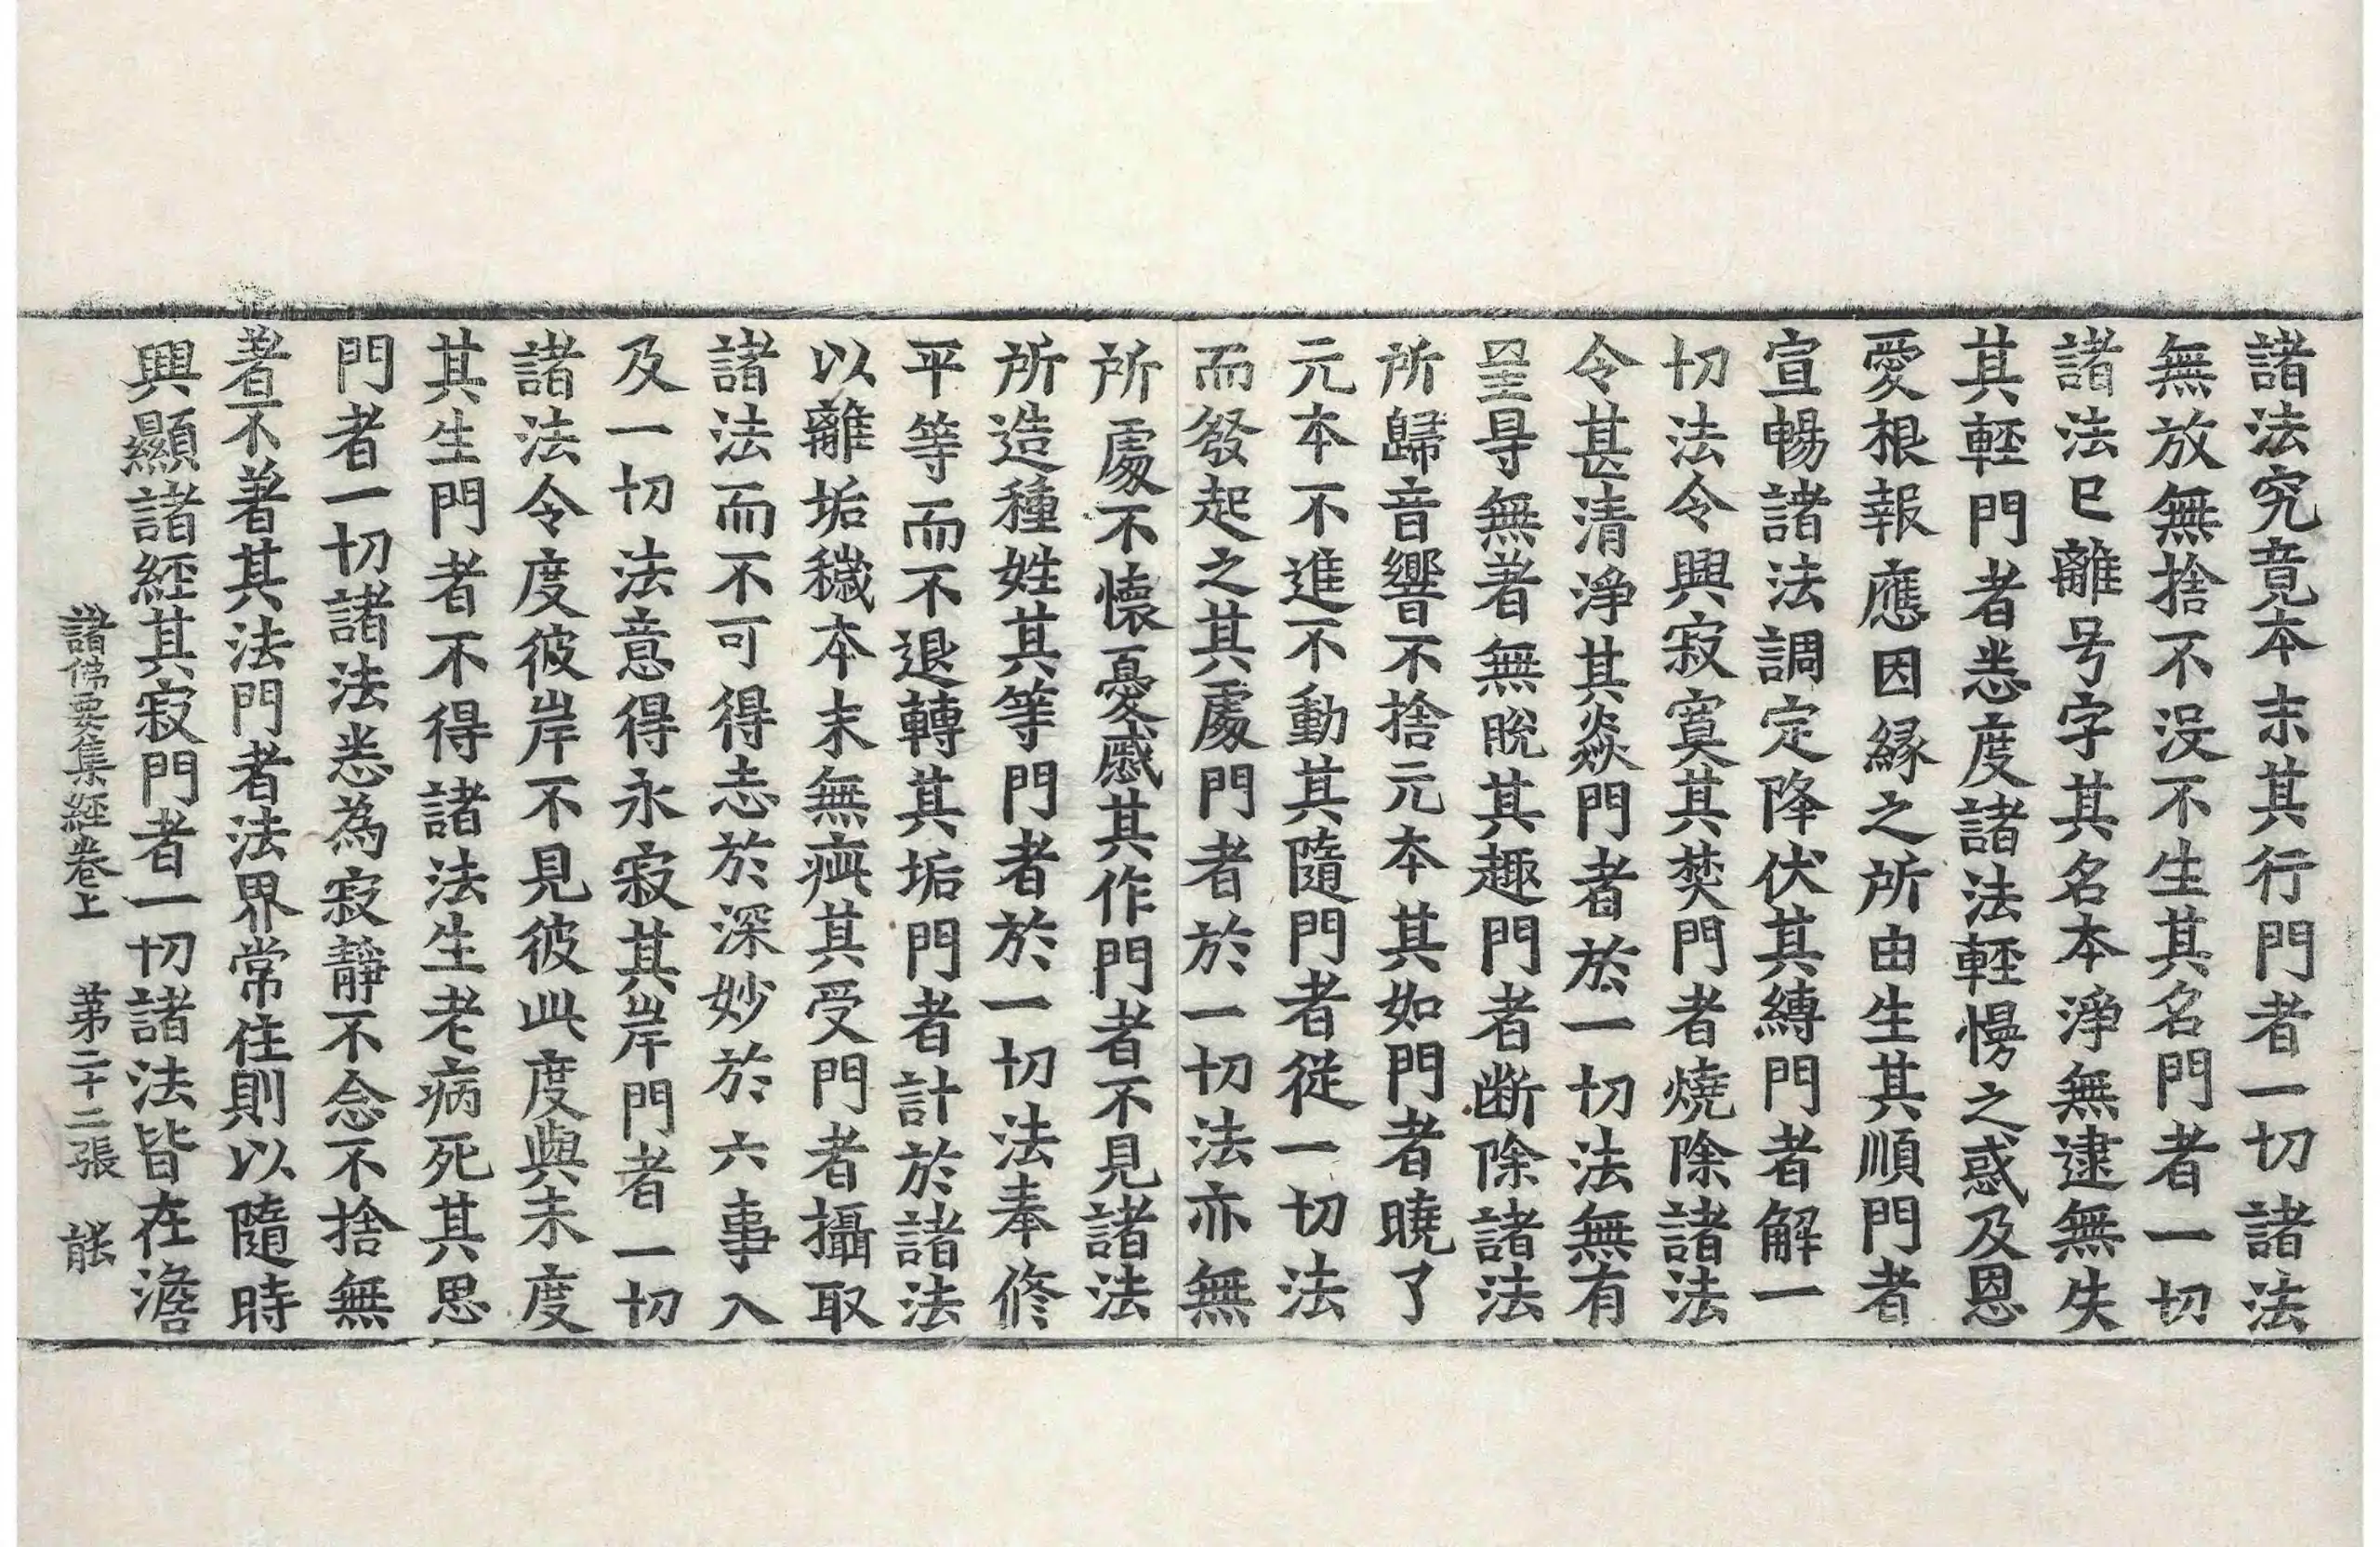 諸法究竟本末其行門者一切諸法
無放無捨不没不生其名門者一切
諸法已離号字其名本淨無逮無失
其輕門者悉度諸法輕慢之惑及恩
愛根報應因縁之所由生其順門者
宣暢諸法調定降伏其縛門者解一
切法令興寂寞其焚門者燒除諸法
令甚清淨其焱門者於一切法無有
罣㝵無著無脫其趣門者断除諸法
所歸音響不捨元本其如門者曉了
元本不進不動其隨門者從一切法
而發起之其處門者於一切法亦無
所處不懷憂慼其作門者不見諸法
所造種姓其等門者於一切法奉修
平等而不退轉其垢門者計於諸法
以離垢穢本末無㾱其受門者攝取
諸法而不可得志於深妙於六事入
及一切法意得永寂其岸門者一切
諸法令度彼岸不見彼此度與未度
其生門者不得諸法生老病死其思
門者一切諸法悉為寂靜不念不捨無
著不著其法門者法界常住則以隨時
興顯諸經其寂門者一切諸法皆在澹
諸佛要集經卷上　第二十二張　能